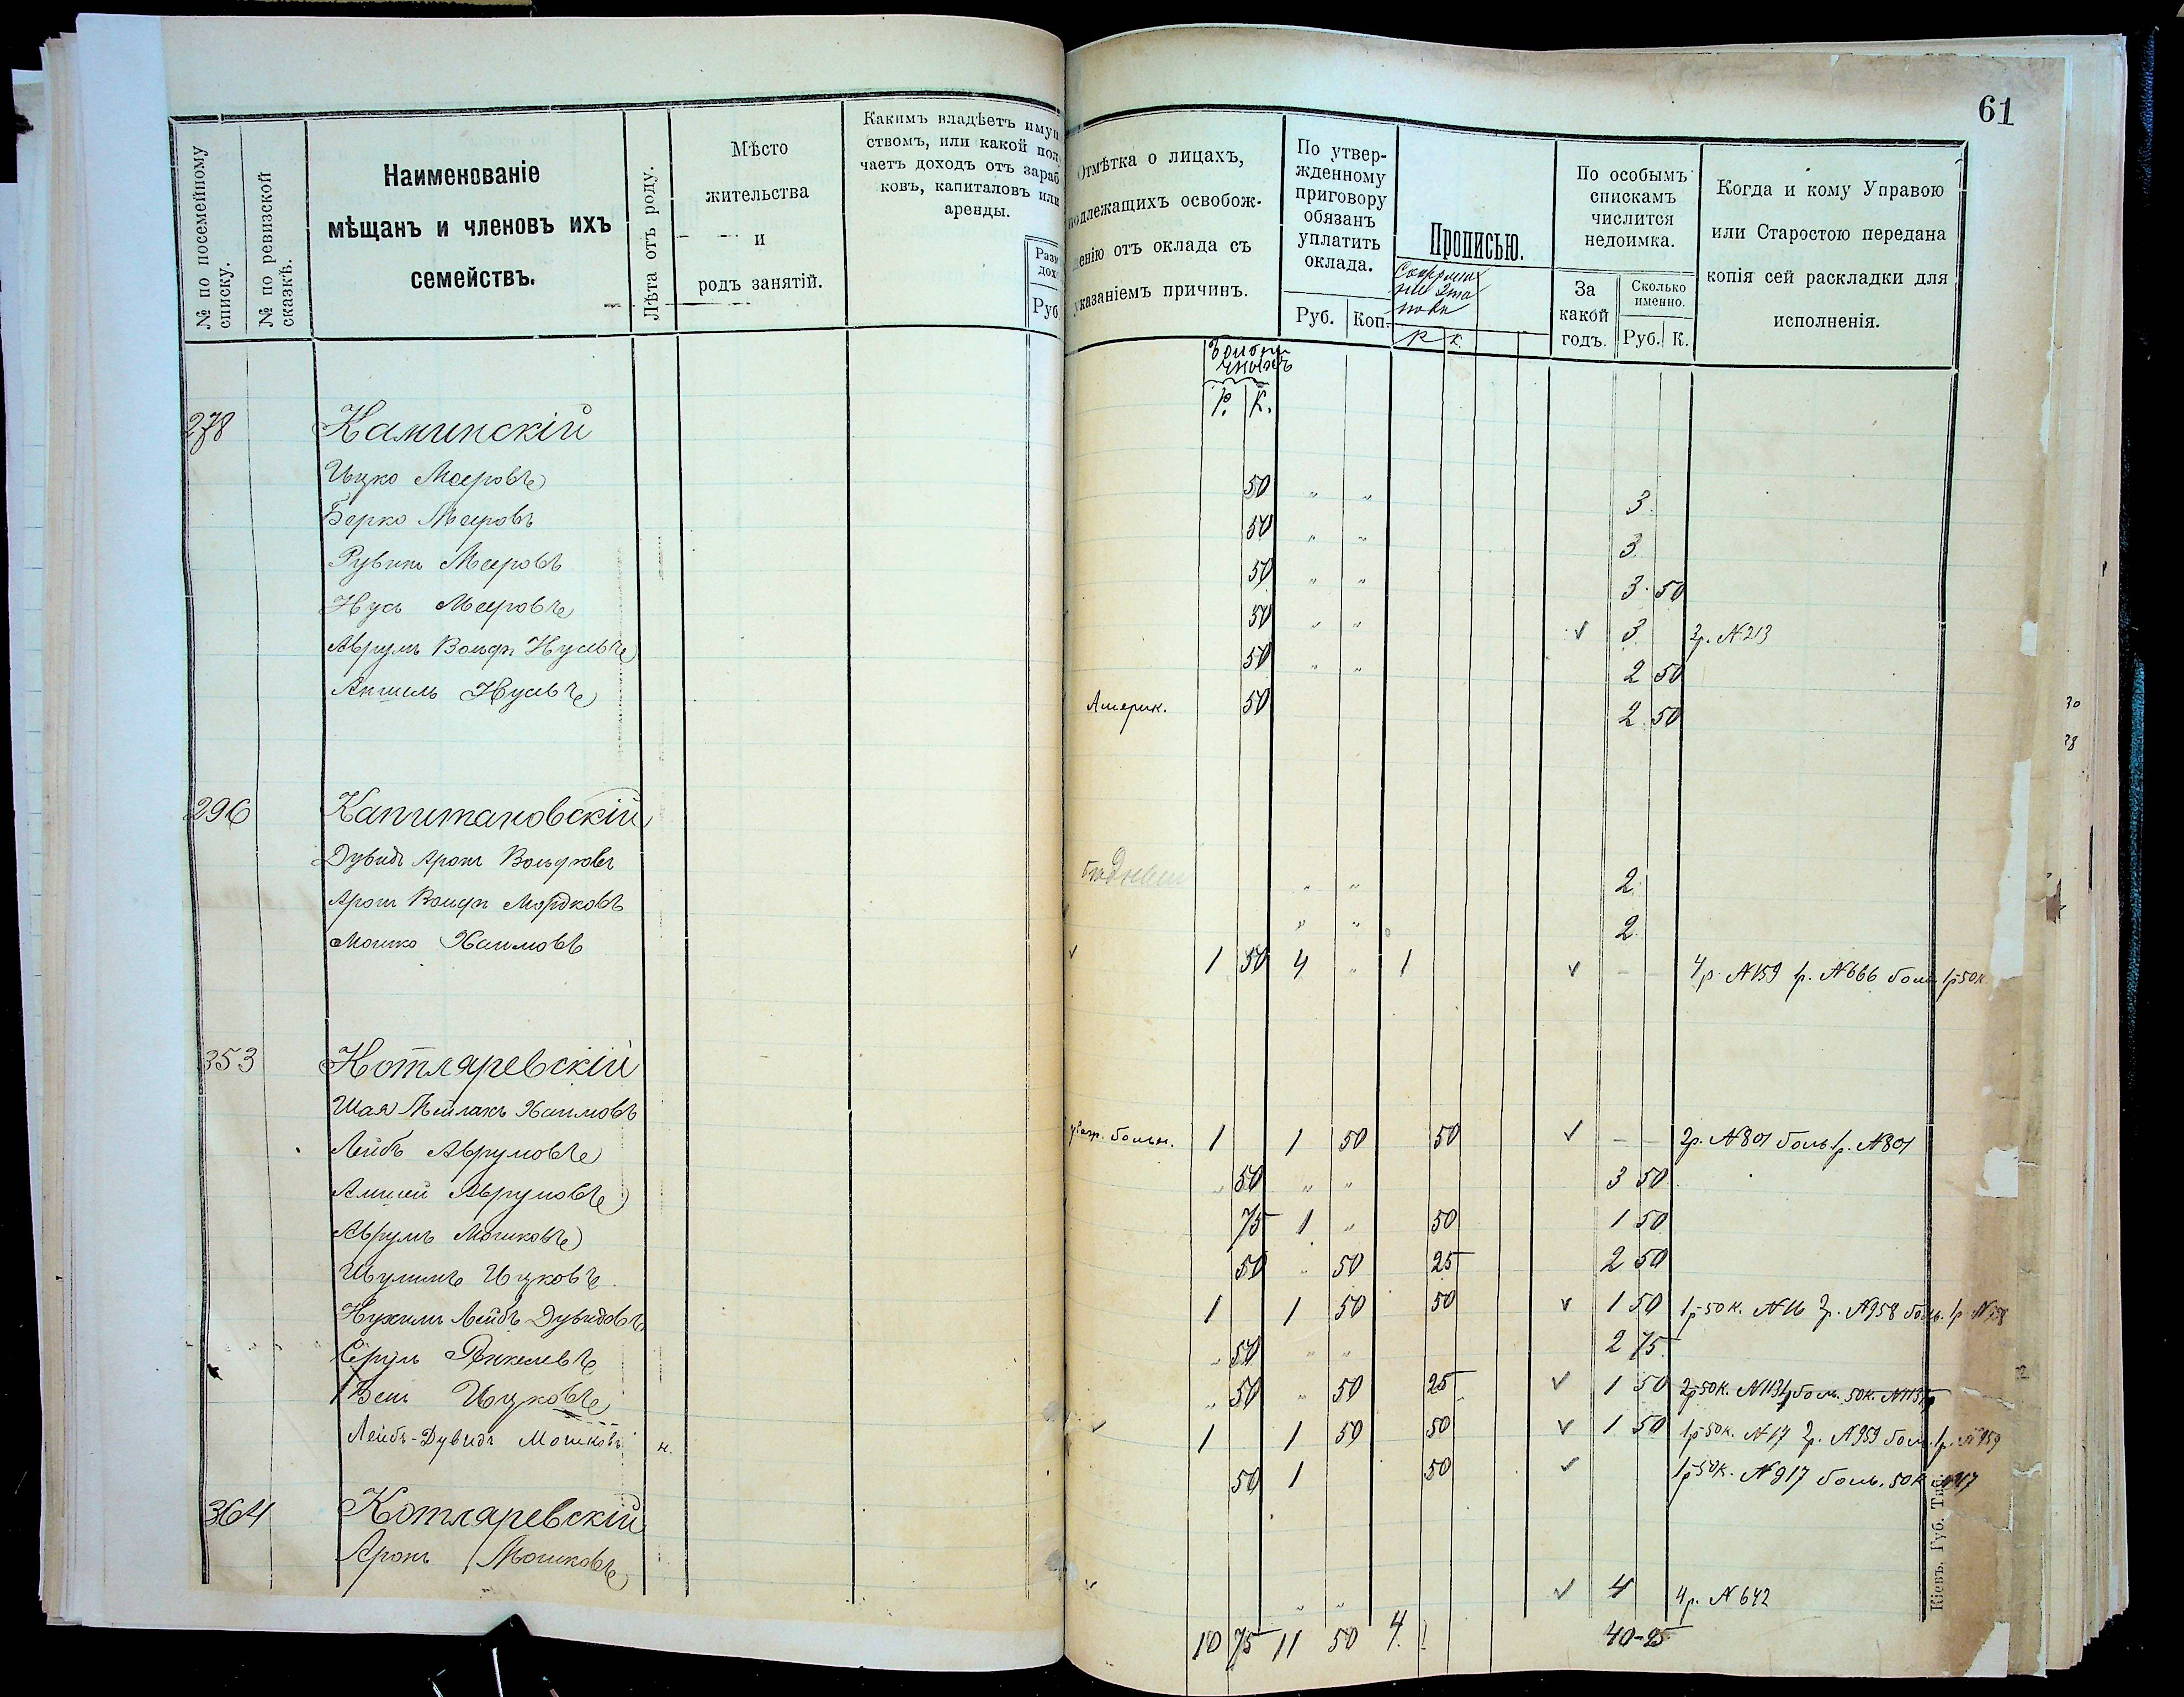 61
№ по посемейному списку.
№ по ревизской сказкѣ.
Наименованіе
мѣщанъ и членовъ ихъ
семействъ.
Лѣта отъ роду.
Мѣсто
жительства
и
родъ занятій.
Какимъ владѣетъ имущ
ствомъ, или какой пол
чаетъ доходъ отъ зараб
ковъ, капиталовъ или
аренды.
Руб.
Отмѣтка о лицахъ,
подлежащихъ освобож-
денію отъ оклада съ
указаніемъ причинъ.
По утвер-
жденному
приговору
обязанъ
уплатить
оклада.
Руб. Коп.
Прописью.
Р К.
По особымъ
спискамъ
числится
недоимка.
За
какой
годъ.
Сколько
именно.
Руб. К.
Когда и кому Управою
или Старостою передана
копія сей раскладки для
исполненія.
Р. К.
278 Каминскій
Ицко Мееровъ 50 „ „ 3
Берко Мееровъ 50 „ „ 3
Рувинъ Мееровъ 50 „ „ 3 50
Нусь Мееровъ 50 „ „ ✓ 3 3р. № 213
Аврумъ Вольфъ Нусевъ 50 „ „ 2 50
Аншель Нусевъ Америк. 50 2 50
296 Капитановскій
Дувидъ Аронъ Вольфовъ „ „ 2
Аронъ Вольфъ Мордковъ „ „ 2
Мошко Хаимовъ ✓ 1 50 4 „ 1 ✓ — — 4р. № 159 1р. № 666 боль 1р50к.
353 Котляревскій
Шая Мейлахъ Хаимовъ больн. 1 1 50 50 ✓ — — 2р. № 801 боль 1р. № 801
Лейбъ Аврумовъ „ 50 „ „ 3 50
Аврумовъ 75 1 „ 50 1 50
Аврумъ Мошковъ 50 „ 50 25 2 50
Шулимъ Ицковъ 1 1 50 50 ✓ 1 50 1р-50к. № 16 2р. № 958 боль. 1р № 958
Нухимъ Лейбъ Дувидовъ „ 50 „ „ 2 75
Сруль Янкелевъ „ 50 „ 50 25 ✓ 1 50 2р50к. № 1134 боль. 50к. № 1134
Ицковъ ✓ 1 1 50 50 ✓ 1 50 1р-50к. № 17 2р. № 959 боль. 1р. № 959
Лейбъ-Дувидъ Мошковъ н. 50 1 50 ✓ 1р50к. № 917 боль. 50к № 917
364 Котляревскій
Аронъ Мошковъ ✓ „ „ ✓ 4 4р. № 642
10 75 11 50 4 40-25
Кіевъ. Губ. Тип.